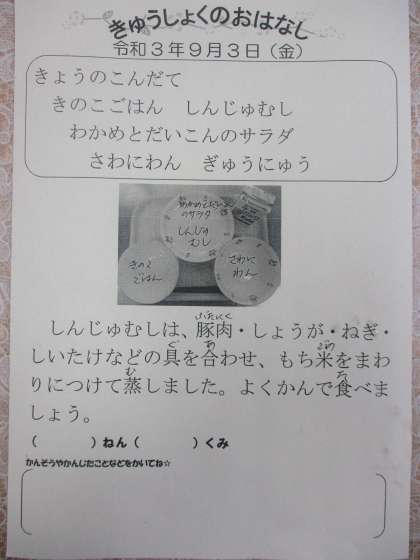 きゅうしょくのおはなし
令和3年9月3日(金)
きょうのこんだて
きのこごはん しんじゅむし
わかめとだいこんのサラダ
さわにわん ぎゅうにゅう
わかめとだいこん
のサラダ
しんじゅ
むし
きのこ
ごはん
さわに
わん
ぶたにく
しんじゅむしは、豚肉・しょうが・ねぎ・
ぐ あ こめ
しいたけなどの具を合わせ、もち米をまわ
む た
りにつけて蒸しました。よくかんで食べま
しょう。
( )ねん( )くみ
かんそうやかんじたことなどをかいてね☆